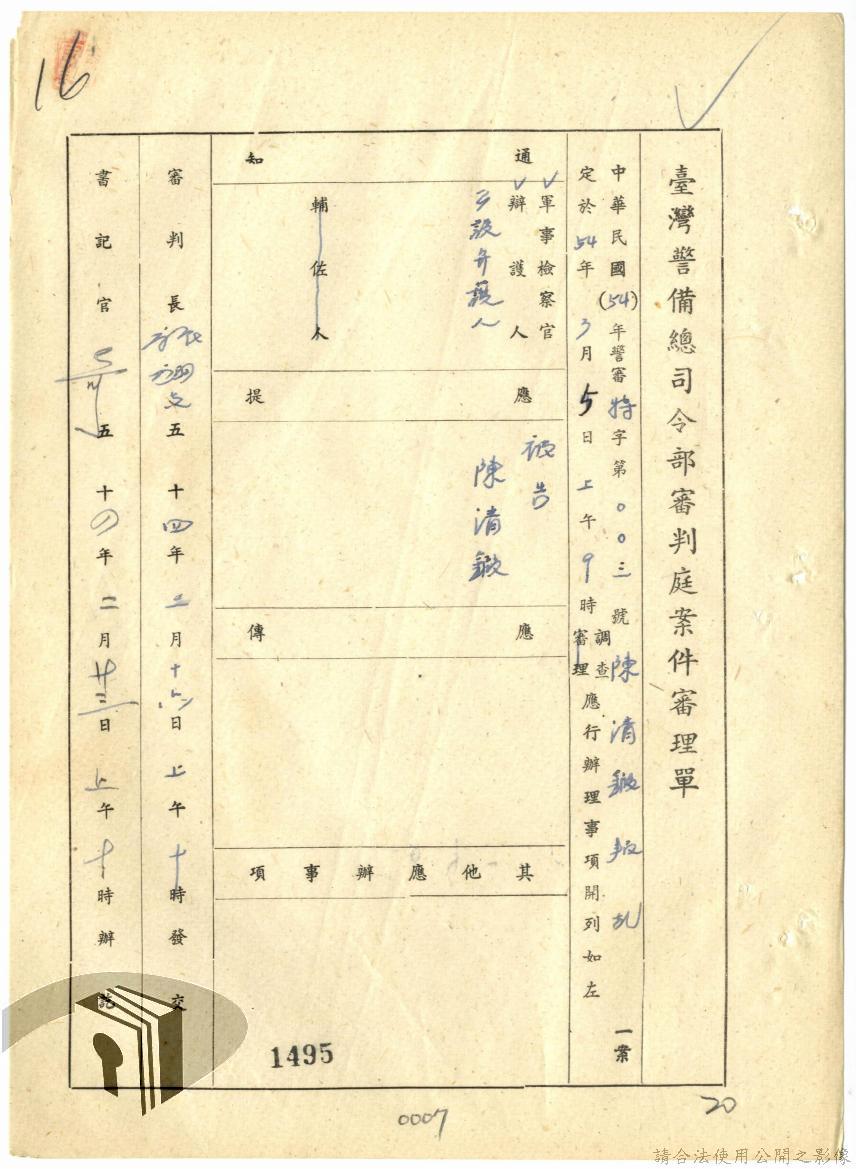 16
臺灣警備總司令部審判庭案件審理單
中華民國(54)年警審特字第〇〇三號陳清鍛叛乱一案
定於54年3月5日上午9時調查審理應行辦理事項開列如左
通知
軍事檢察官
辯護人
公設弁護人
輔佐人
應提
被告
陳清鍛
應傳
其他應辦事項
審判長
五十四年二月十六日上午十時發交
書記官
五十四年二月廿三日上午十時辦訖
1495
0007
20
請合法使用公開之影像